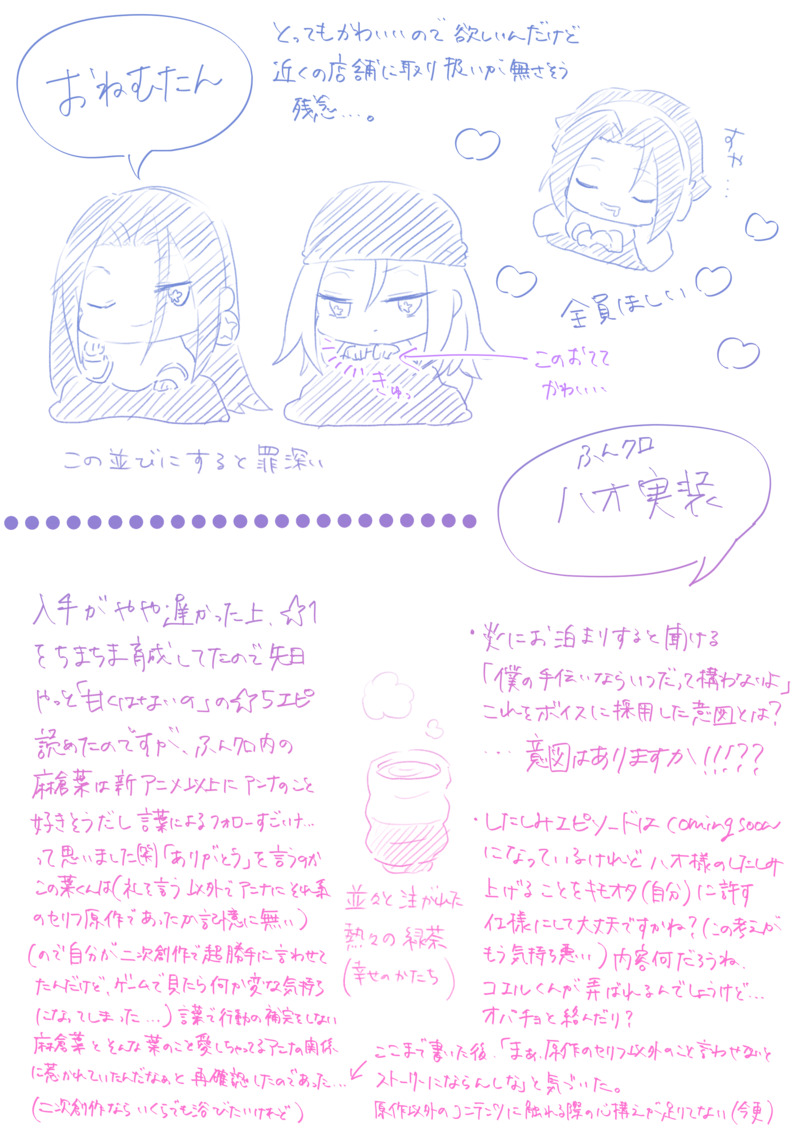 おねむたん
とってもかわいいので欲しいんだけど
近くの店舗に取り扱いが無さそう
残念…。
すや…
全員ほしい
このおてて
かわいい
きゅっ
この並びにすると罪深い
ふんクロ
ハオ実装
入手がやや遅かった上、☆1
をちまちま育成してたので先日
やっと「甘くはないの」の☆5エピ
読めたのですが、ふんクロ内の
麻倉葉は新アニメ以上にアンナのこと
好きそうだし言葉によるフォローすごいけ…
って思いました(笑)「ありがとう」を言うのか
この葉くんは(礼して言う以外でアンナにそれ系
のセリフ原作であったか記憶に無い)
(ので自分が二次創作で超勝手に言わせて
たんだけど、ゲームで見たら何か変な気持ち
になってしまった…)言葉で行動の補完をしない
麻倉葉とそんな葉のこと愛しちゃってるアンナの関係
に惹かれていたんだなぁと再確認したのであった…
(二次創作ならいくらでも浴びたいけれど)
並々と注がれた
熱々の緑茶
(幸せのかたち)
・炎にお泊まりすると聞ける
「僕の手伝いならいつだって構わないよ」
これをボイスに採用した意図とは?
…意図はありますか!!!??
・したしみエピソードはcoming soon
になっているけれどハオ様のしたしみ
上げることをキモオタ(自分)に許す
仕様にして大丈夫ですかね?(この考えが
もう気持ち悪い)内容何だろうね、
コエルくんが弄ばれるんでしょうけど…
オパチョと絡んだり?
ここまで書いた後、「まあ、原作のセリフ以外のこと言わせないと
ストーリーにならんしな」と気づいた。
原作以外のコンテンツに触れる際の心構えが足りてない(今更)